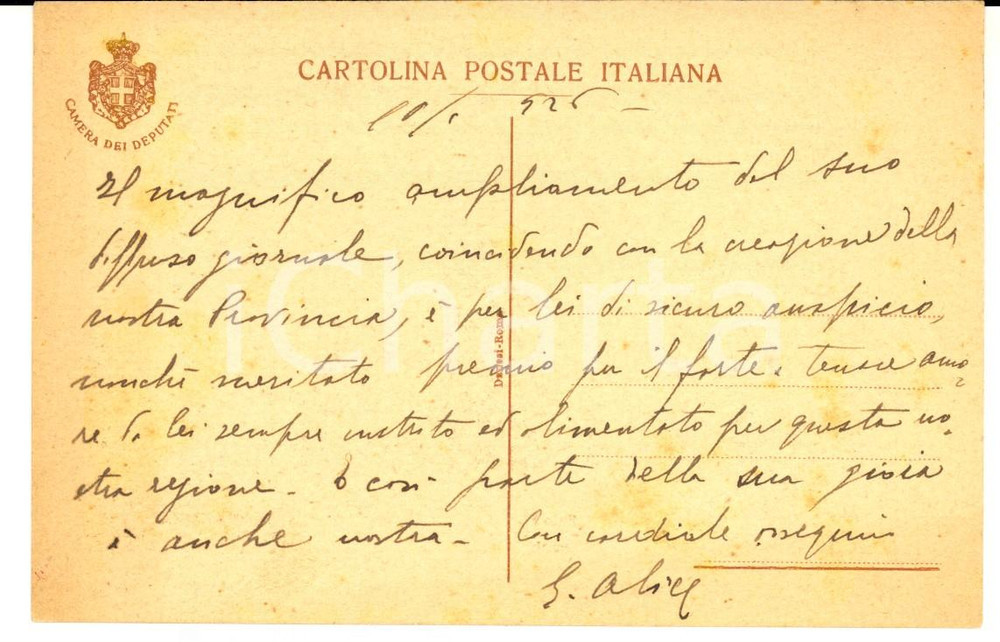 CAMERA DEI DEPUTATI
CARTOLINA POSTALE ITALIANA
10/1 926 -
Il magnifico ampliamento del suo
diffuso giornale, coincidendo con la creazione della
nostra Provincia, è per lei di sicuro auspicio,
nonché meritato premio per il forte e tenace amo-
re da lei sempre nutrito ed alimentato per questa no-
stra regione - E così parte della sua gioia
è anche nostra - Con cordiale ossequio
iCharta